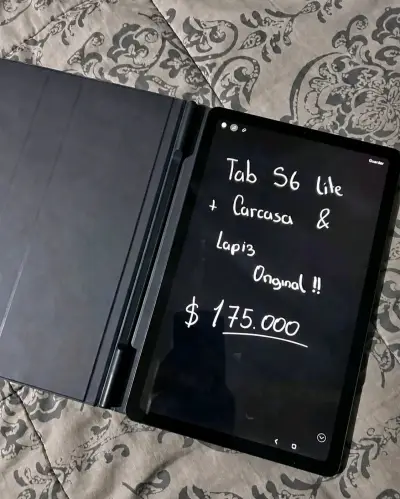 Guardar
Tab S6 Lite
+ Carcasa &
Lapiz
Original !!
$ 175.000